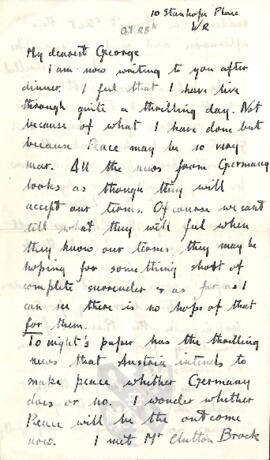 10 Stanhope Place
W2
Oct 28th
My dearest George
I am now writing to you after
dinner. I feel that I have live
through quite a thrilling day. Not
because of what I have done but
because Peace may be so very
near. All the news from Germany
looks as though they will
accept our terms. Of course we cant
tell what they will feel when
they know our terms, they may be
hoping for something short of
complete surrender & as far as I
can see there is no hope of that
for them.
To night's paper has the thrilling
news that Austria intends to
make peace whether Germany
does or no. I wonder whether
Peace will be the outcome
now. I met Mr Clutton Brock